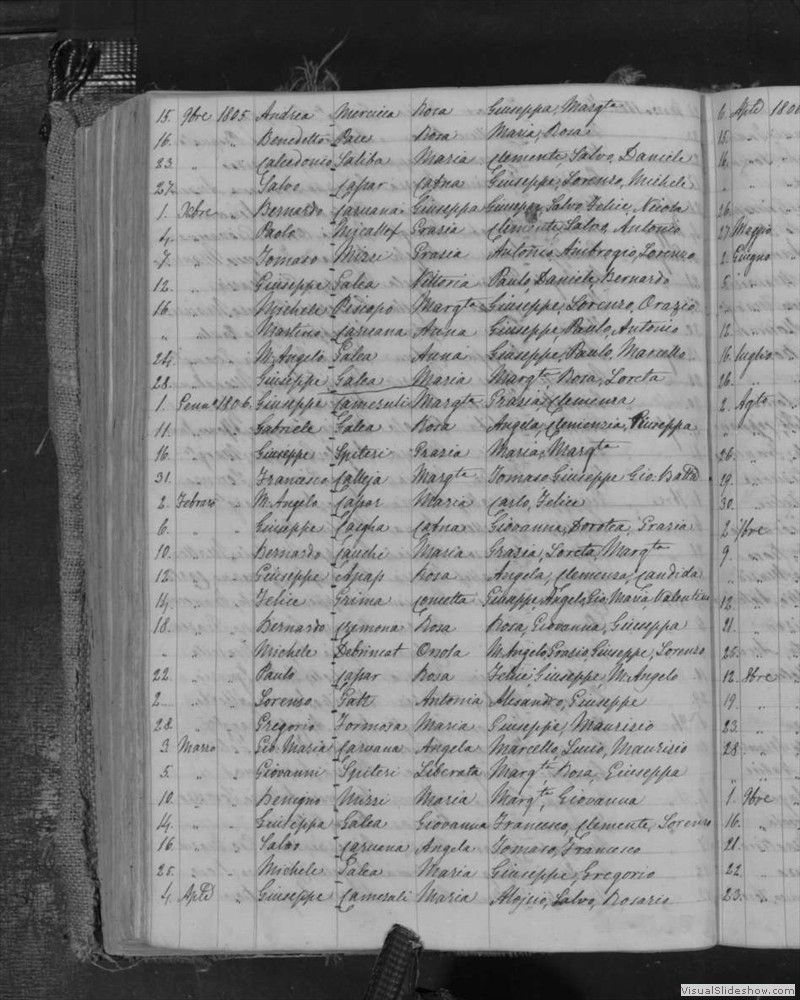 15. 9bre 1805 Andrea Mercieca Rosa Giuseppa, Margta
16. " " Benedetto Pace Rosa Maria, Rosa
23. " " Calcedonio Saliba Maria Clemente, Salvo, Daniele
27. " " Salvo Caspar Catna Giuseppe, Lorenzo, Michele
1. Xcbre " Bernardo Caruana Giuseppa Giuseppe, Salvo, Felice, Nicola
4. " " Paolo Micallef Grazia Clemente, Salvo, Antonio
7. " " Tomaso Mizzi Grazia Antonio, Ambrogio, Lorenzo
12. " " Giuseppe Galea Vittoria Paulo, Daniele, Bernardo
16. " " Michele Piscopo Margta Giuseppe, Lorenzo, Orazio
" " " Martino Caruana Anna Giuseppe, Paulo, Antonio
24. " " M. Angelo Galea Anna Giuseppe, Paulo, Marcello
28. " " Giuseppe Galea Maria Margta, Rosa, Loreta
1. Genno 1806. Giuseppe Camenzuli Margta Grazia, Clemenza
11. " " Gabriele Galea Rosa Angela, Clemenzia, Giuseppa
16. " " Giuseppe Spiteri Grazia Maria, Margta
31. " " Francesco Calleja Margta Tomaso, Giuseppe, Gio: Batta
2. Febraro " M. Angelo Caspar Maria Carlo, Felice
6. " " Giuseppe Catna Giovanna, Dorotea, Grazia
10. " " Bernardo Cauchi Maria Grazia, Loreta, Margta
12. " " Giuseppe Agius Rosa Angela, Clemenza, Candida
14. " " Felice Grima Concetta Giuseppe, Angelo, Gio: Maria, Valentino
18. " " Bernardo Cremona Rosa Rosa, Giovanna, Giuseppa
" " " Michele Debrincat Orsola M. Angelo, Grazio, Giuseppe, Lorenzo
22. " " Paulo Caspar Rosa Felice, Giuseppe, M. Angelo
2 " " Lorenzo Gatt Antonia Alesandro, Giuseppe
28. " " Gregorio Formosa Maria Giuseppe, Maurizio
3. Marzo " Gio. Maria Caruana Angela Marcello, Lucio, Maurizio
5. " " Giovanni Spiteri Liberata Margta, Rosa, Giuseppa
10. " " Benigno Mizzi Maria Margta, Giovanna
14. " " Giuseppe Galea Giovanna Francesco, Clemente, Lorenzo
16. " " Salvo Caruana Angela Tomaso, Francesco
25. " " Michele Galea Maria Giuseppe, Gregorio
4. Aple " Giuseppe Camenzuli Maria Salvo, Rosario
6. Aple 1806
15. " "
16. " "
" "
26. " "
27. Maggio
2. Giugno
5 "
12. "
16. Luglio
26. "
2. Agto
" "
26. "
29. "
30. "
2 7bre
9. "
" "
12. "
21. "
25. "
12. 8bre
19. "
23. "
28. "
" "
1. 9bre
16. "
21. "
22. "
23. "
VisualSlideshow.com